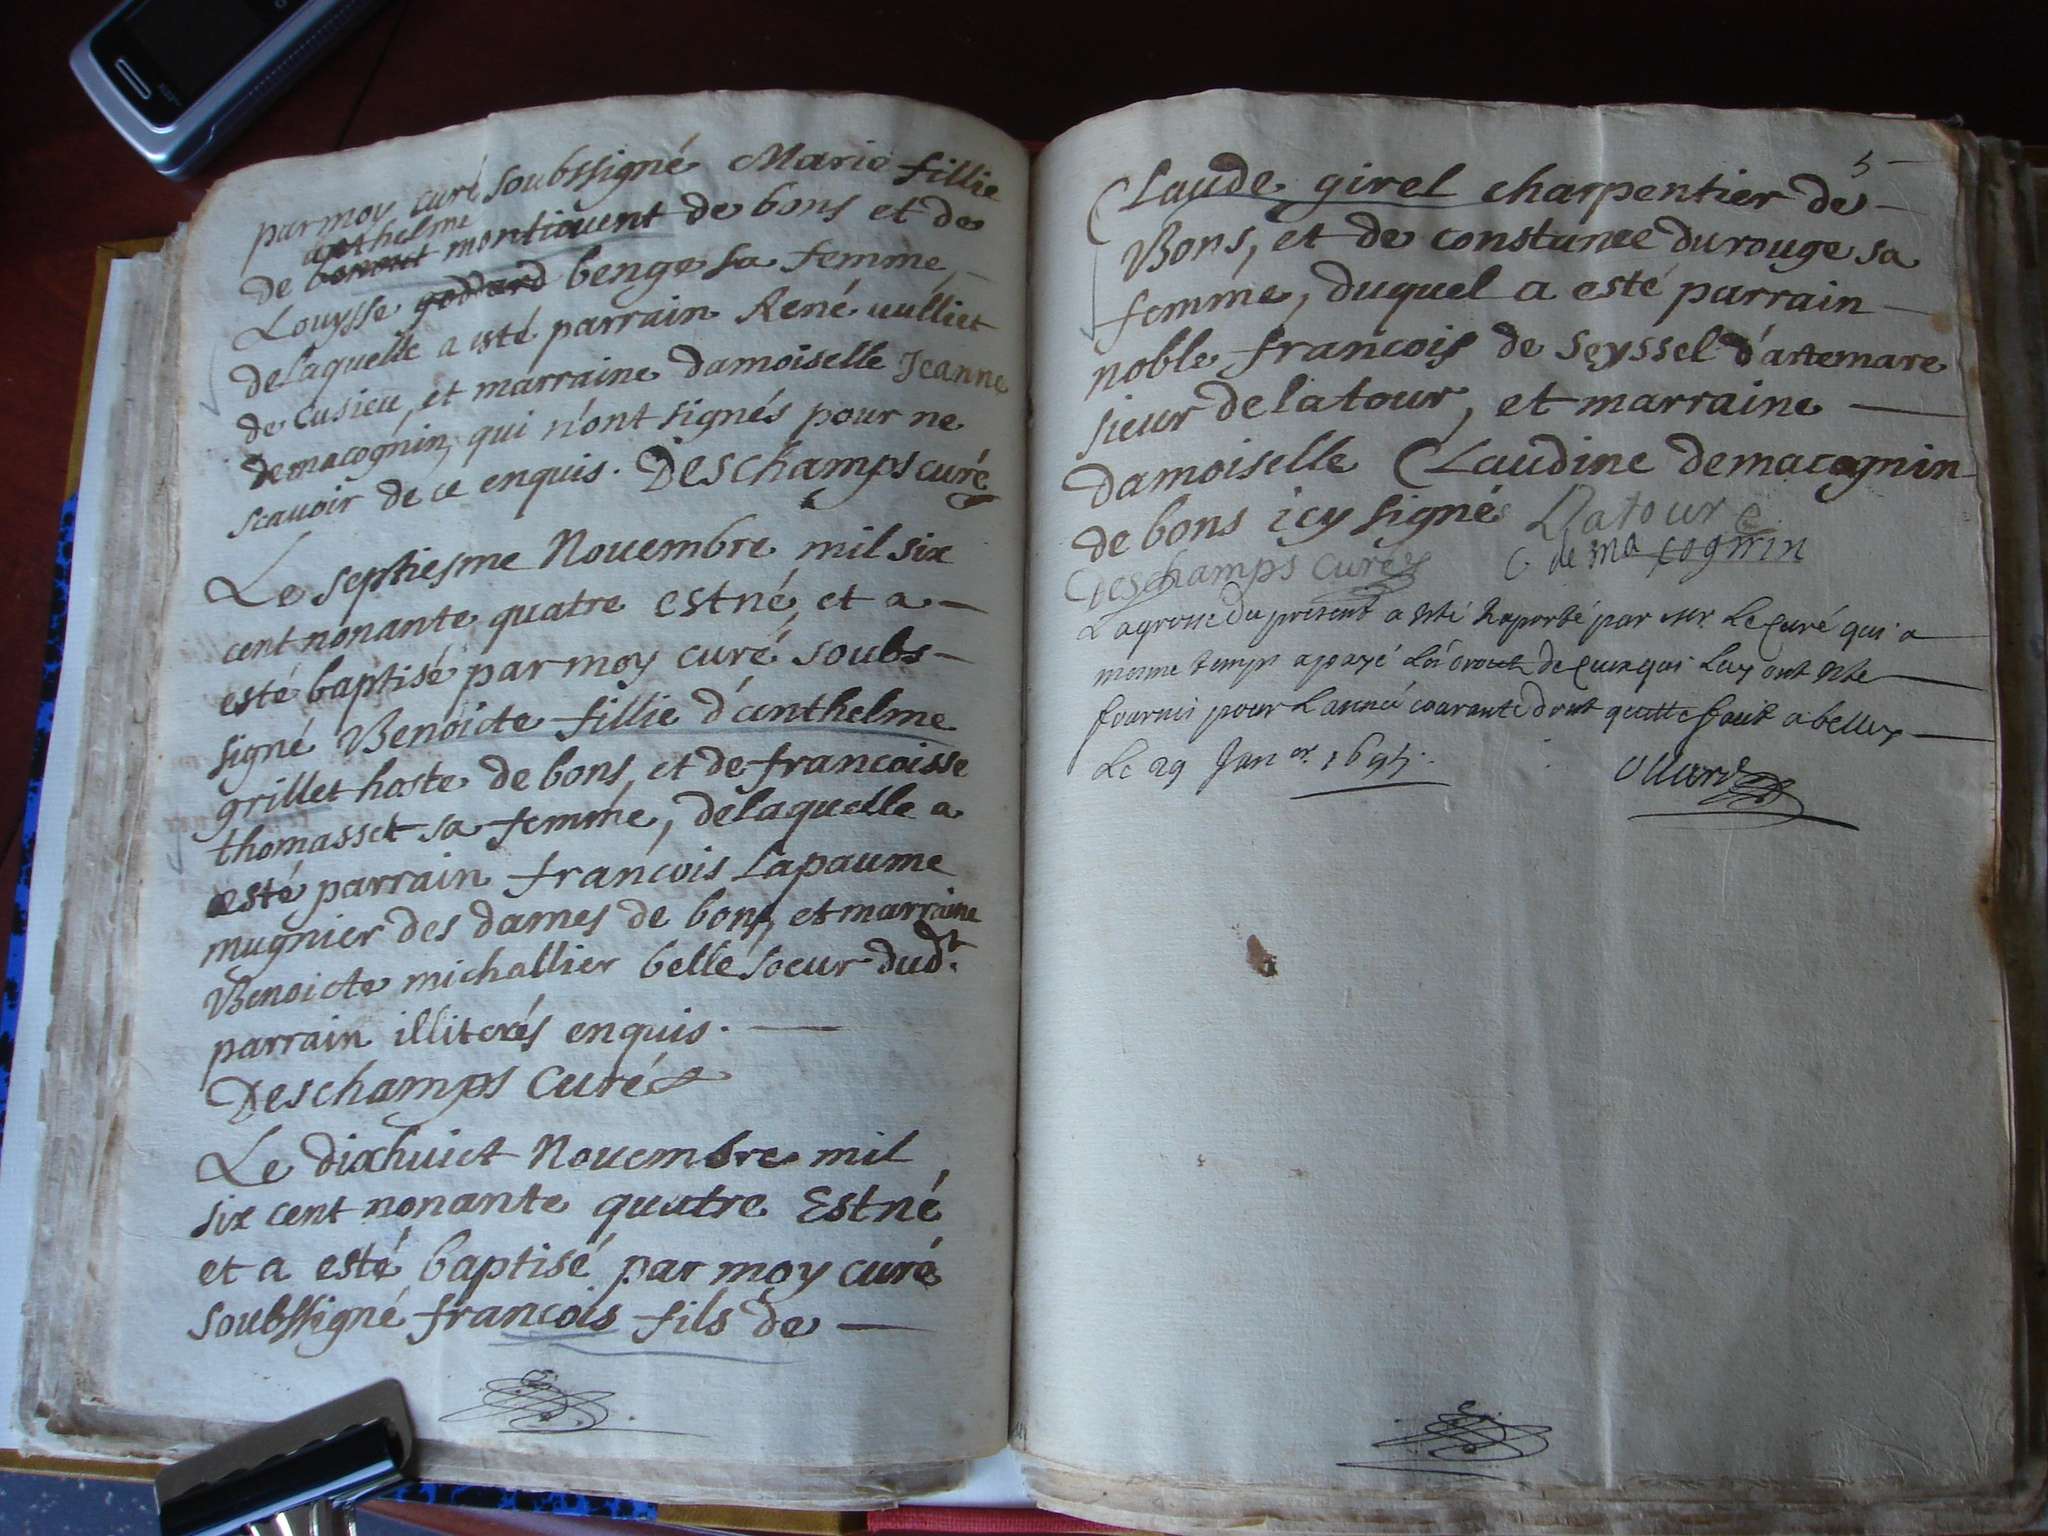 par moy curé soubssigné Marie fillie
anthelme
de benoict montiouent de bons et de
Louysse goddard benge sa femme,
de laquelle a esté parrain René uulliet
de Cusieu, et marraine damoiselle Jeanne
demacognin, qui n'ont signés pour ne
scauoir de ce enquis. Deschamps curé
Le septiesme Nouembre mil six
cent nonante quatre est né, et a
esté baptisé par moy curé soubs-
signé Benoicte fillie d'anthelme
grillet hoste de bons, et de francoisse
thomasset sa femme, de laquelle a
esté parrain francois Lapaume
mugnier des dames de bons, et marraine
Benoicte michallier belle soeur dud.t
parrain illiterés enquis.
Deschamps Curé
Le dixhuict Nouembre mil
six cent nonante quatre Est né
et a esté baptisé par moy curé
soubssigné francois fils de
5
Claude girel charpentier de
Bons, et de constance du rouge sa
femme, duquel a esté parrain
noble francois de Seyssel d'artemare
sieur de la tour, et marraine
damoiselle Claudine demacognin
de bons icy signés Latour
Deschamps Curé C de macognin
La grosse du present a esté raporté par Mr. Le Curé qui a
mesme temps apayé les droits de ceux qui Luy ont esté
fournis pour Lannée courante dont quitte fait a belley
Le 29 Jan.er 1695.